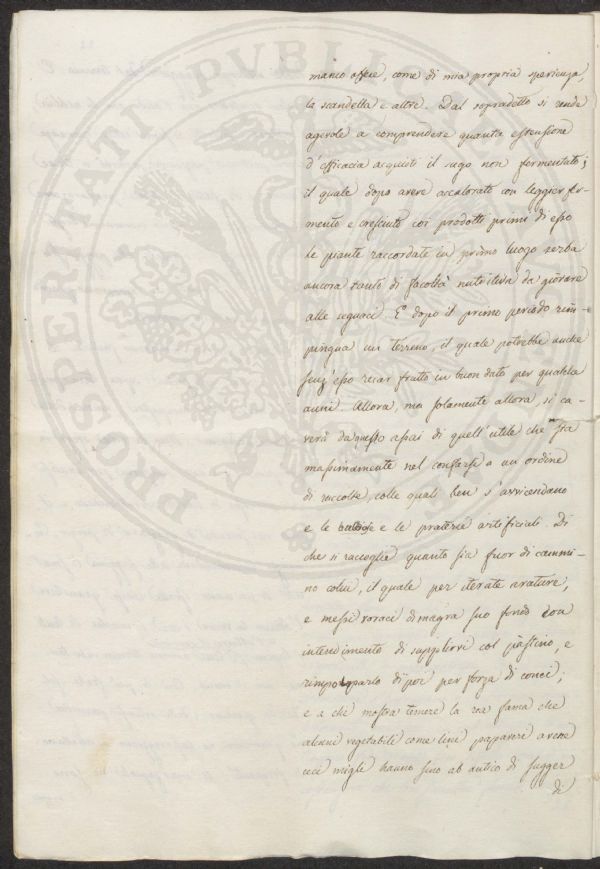 manco offese, come di mia propria sperienza,
la scandella e altre. Dal sopradetto si rende
agevole a comprendere quanta estensione
d'efficacia acquisti il sugo non fermentato;
il quale dopo avere accalorate con leggier fer-
mento e cresciute coi prodotti primi di esso
le piante raccordate in primo luogo serba
ancora tanto di facoltà nutritiva da giovare
alle seguaci. E dopo il primo periodo rim-
pingua un terreno, il quale potrebbe anche
senz'esso recar frutto in buon dato per qualche
anni. Allora, ma solamente allora, si ca-
verà da questo assai di quell'utile che sta
massimamente nel confarsi a un ordine
di raccolte, colle quali ben s'avvicendano
e le bulbose e le praterie artificiali. Di
che si raccoglie quanto sia fuor di cammi-
no colui, il quale per iterate arature,
e messi voraci dimagra suo fondo con
intendimento di supplirvi col pastino, e
rimpolparlo di poi per forza di conci;
e a chi mostra temere la rea fama che
alcuni vegetabili come lini papaveri avene
ceci migli hanno sino ab antico di sugger
di
PROSPERITATI PVBLICAE